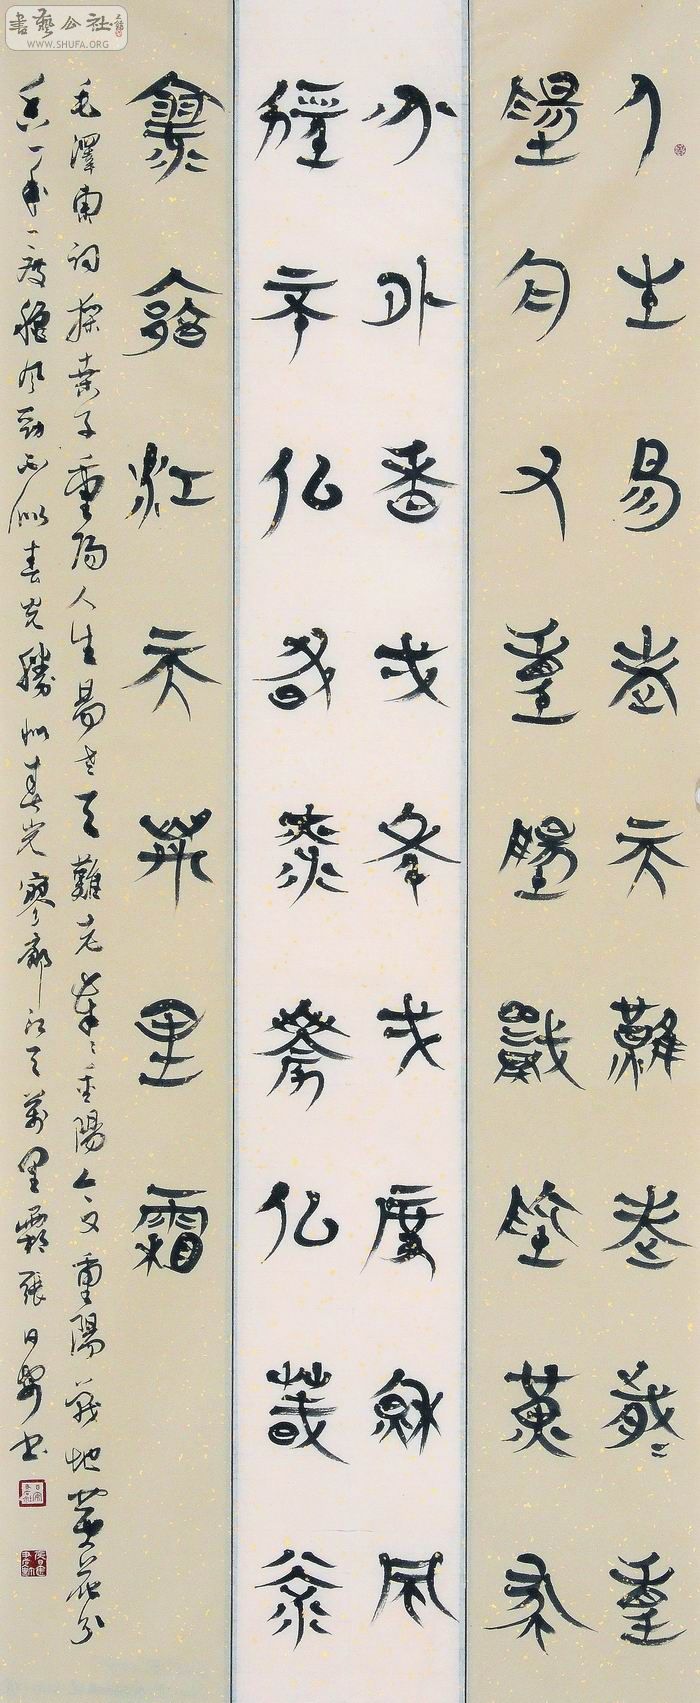 書藝公社
WWW.SHUFA.ORG
人生易老天難老歲〻重
陽今又重陽戰地黃花
分外香弌年弌度秋風
勁不似春光勝似春光
寥廓江天萬里霜
毛澤東詞採桑子重陽人生易老天難老歲〻重陽今又重陽戰地黃花分
外香一年一度穐風勁不似春光勝似春光寥廓江天萬里霜張日書